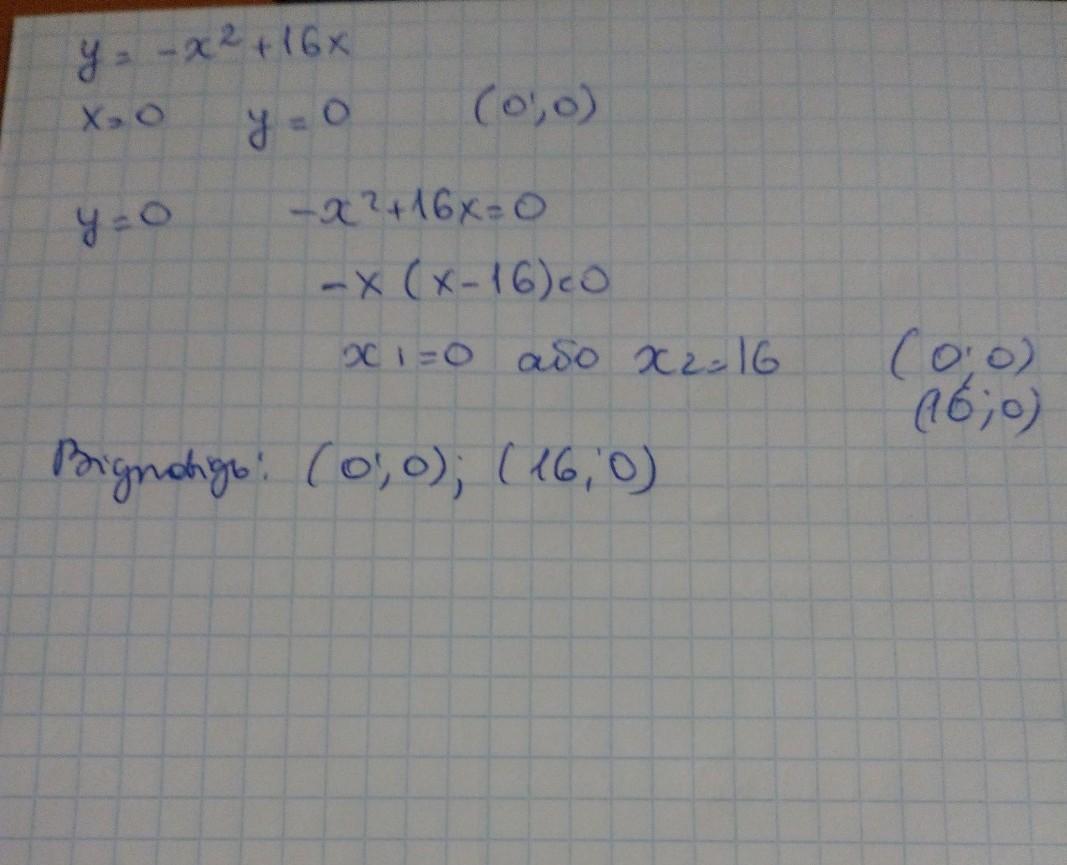 y = -x² + 16x
x=0 y=0 (0;0)
y=0 -x²+16x=0
-x(x-16)=0
x₁=0 або x₂=16 (0;0)
(16;0)
Відповідь: (0;0); (16;0)